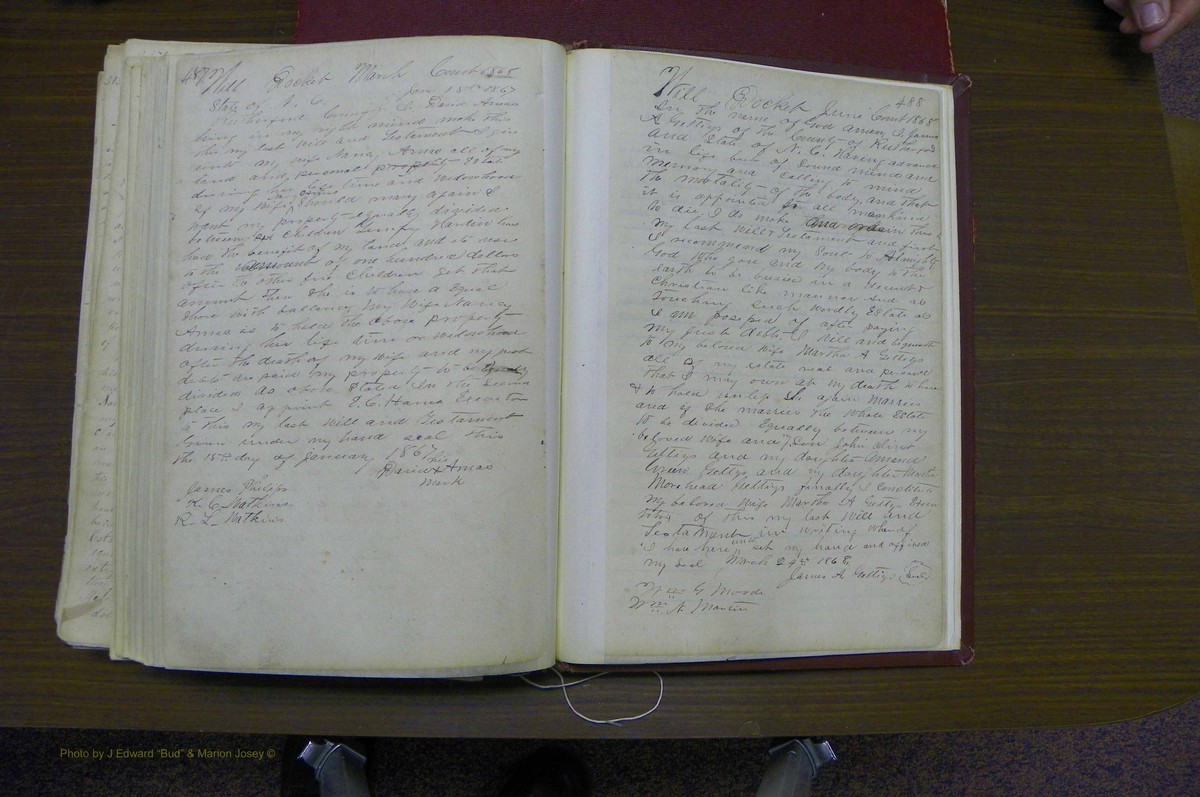 487 Will Docket March Court 1868
State of N. C. Jan 15th 1867
Rutherford County I David Amos
being in my right mind make this
this my last Will and Testament I give
unto my wife Nancy Amos all of my
land and personal property Estate
during her life time and widowhood
if my Wife should marry again I
want my property equally divided
between children
have the benefit of my land and its use
to the amount of one hundred dollars
after the other children get that
amount then she is to have a Equal
share with ballance My Wife Nancy
Amos is to hold the above property
during her life time or widowhood
after the death of my Wife and my just
debts are paid my property to be equally
divided as above stated In the Second
place I appoint Executor
to this my last Will and Testament
Given under my hand seal this
the 15th day of January 1867
his
David X Amos
mark
James Philips
K. C. Wathins
R. L. Wathins
Will Docket June Court 1868 488
In the name of God amen I James
A Gettys of the County of Rutherford
and State of N. C. Having advanced
in life but of sound mind and
memory and calling to mind
the mortality of the body, and that
it is appointed for all mankind
to die, I do make and ordain this
my last Will & Testament and first
I recommend my Soul to Almighty
God who gave and my body to the
earth to be buried in a decent
Christian like manner And as
touching such wordly Estate as
I am possessed of after paying
my just debts I Will and bequeath
to my beloved Wife Martha A Gettys
all of my estate real and personal
that I may own at my death to have
& to hold unless she again marries
and if she marries the whole Estate
to be divided Equally between my
beloved Wife and my Son John Oliver
Gettys and my daughter
Gettys and my daughter Martha
Morehead Gettys finally I Constitute
my beloved Wife Martha A Gettys
of this my last Will and
Testament in writing whereof
I have here unto set my hand and affixed
my Seal March 24th 1868
James A Gettys (Seal)
Wm G Moode
Wm A Martin
Photo by J Edward "Bud" & Marion Josey ©